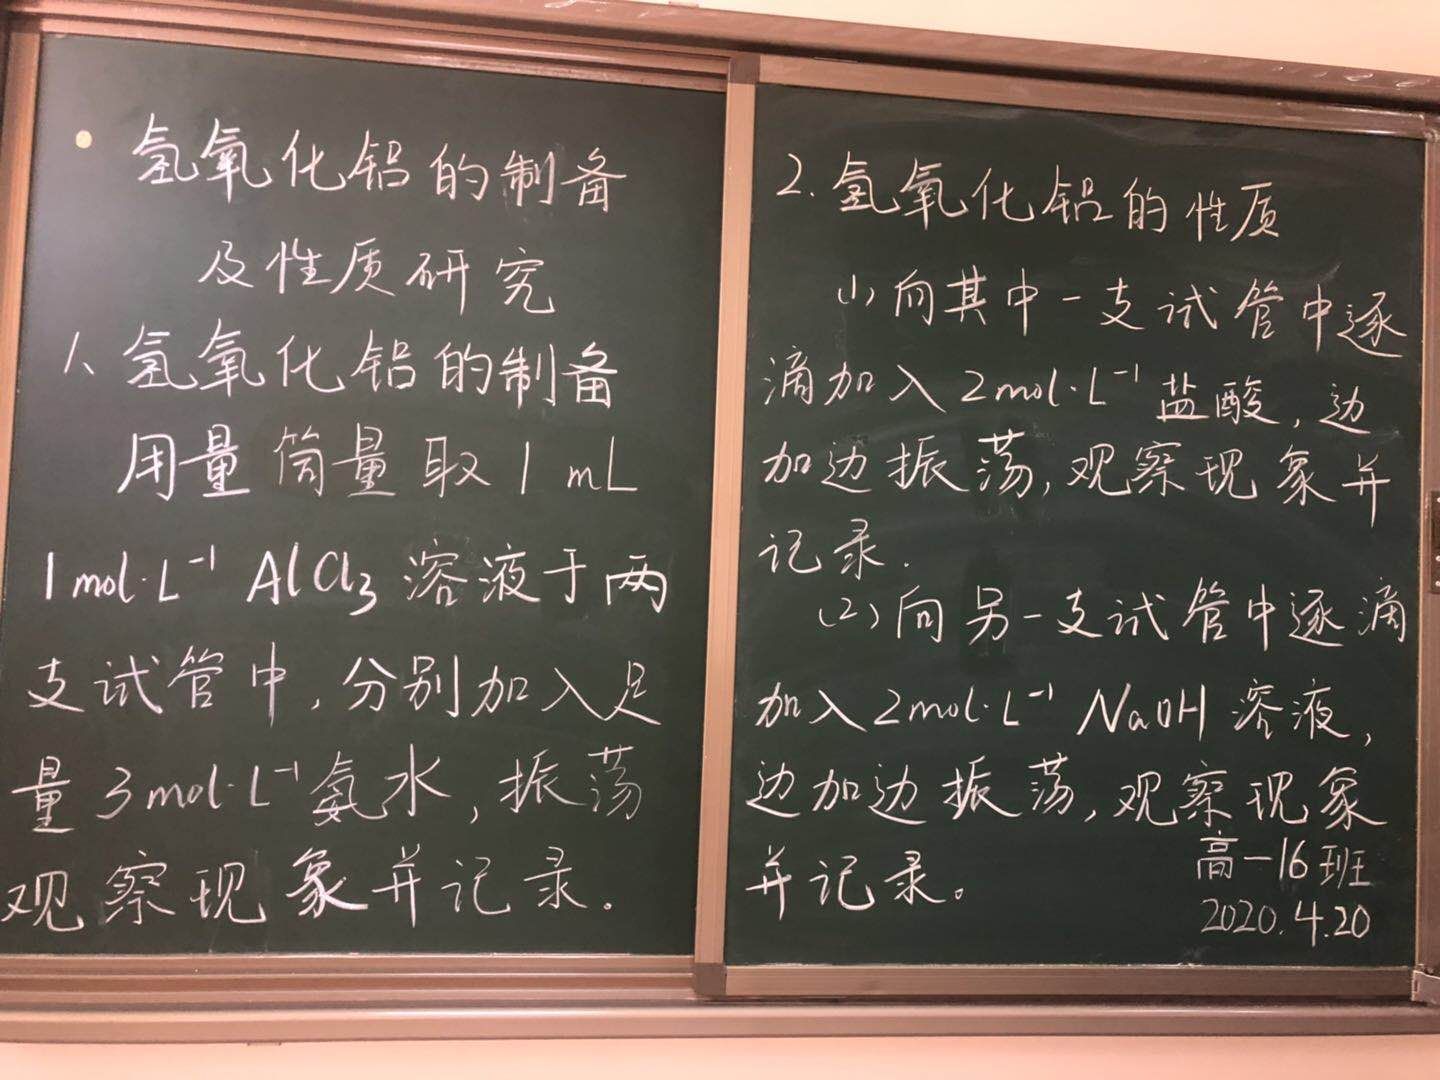 氢氧化铝的制备
及性质研究
1、氢氧化铝的制备
用量筒量取1mL
1mol·L⁻¹ AlCl₃溶液于两
支试管中，分别加入足
量3mol·L⁻¹氨水，振荡
观察现象并记录．
2.氢氧化铝的性质
(1)向其中一支试管中逐
滴加入2mol·L⁻¹盐酸，边
加边振荡，观察现象并
记录．
(2)向另一支试管中逐滴
加入2mol·L⁻¹ NaOH溶液，
边加边振荡，观察现象
并记录。
高一16班
2020.4.20